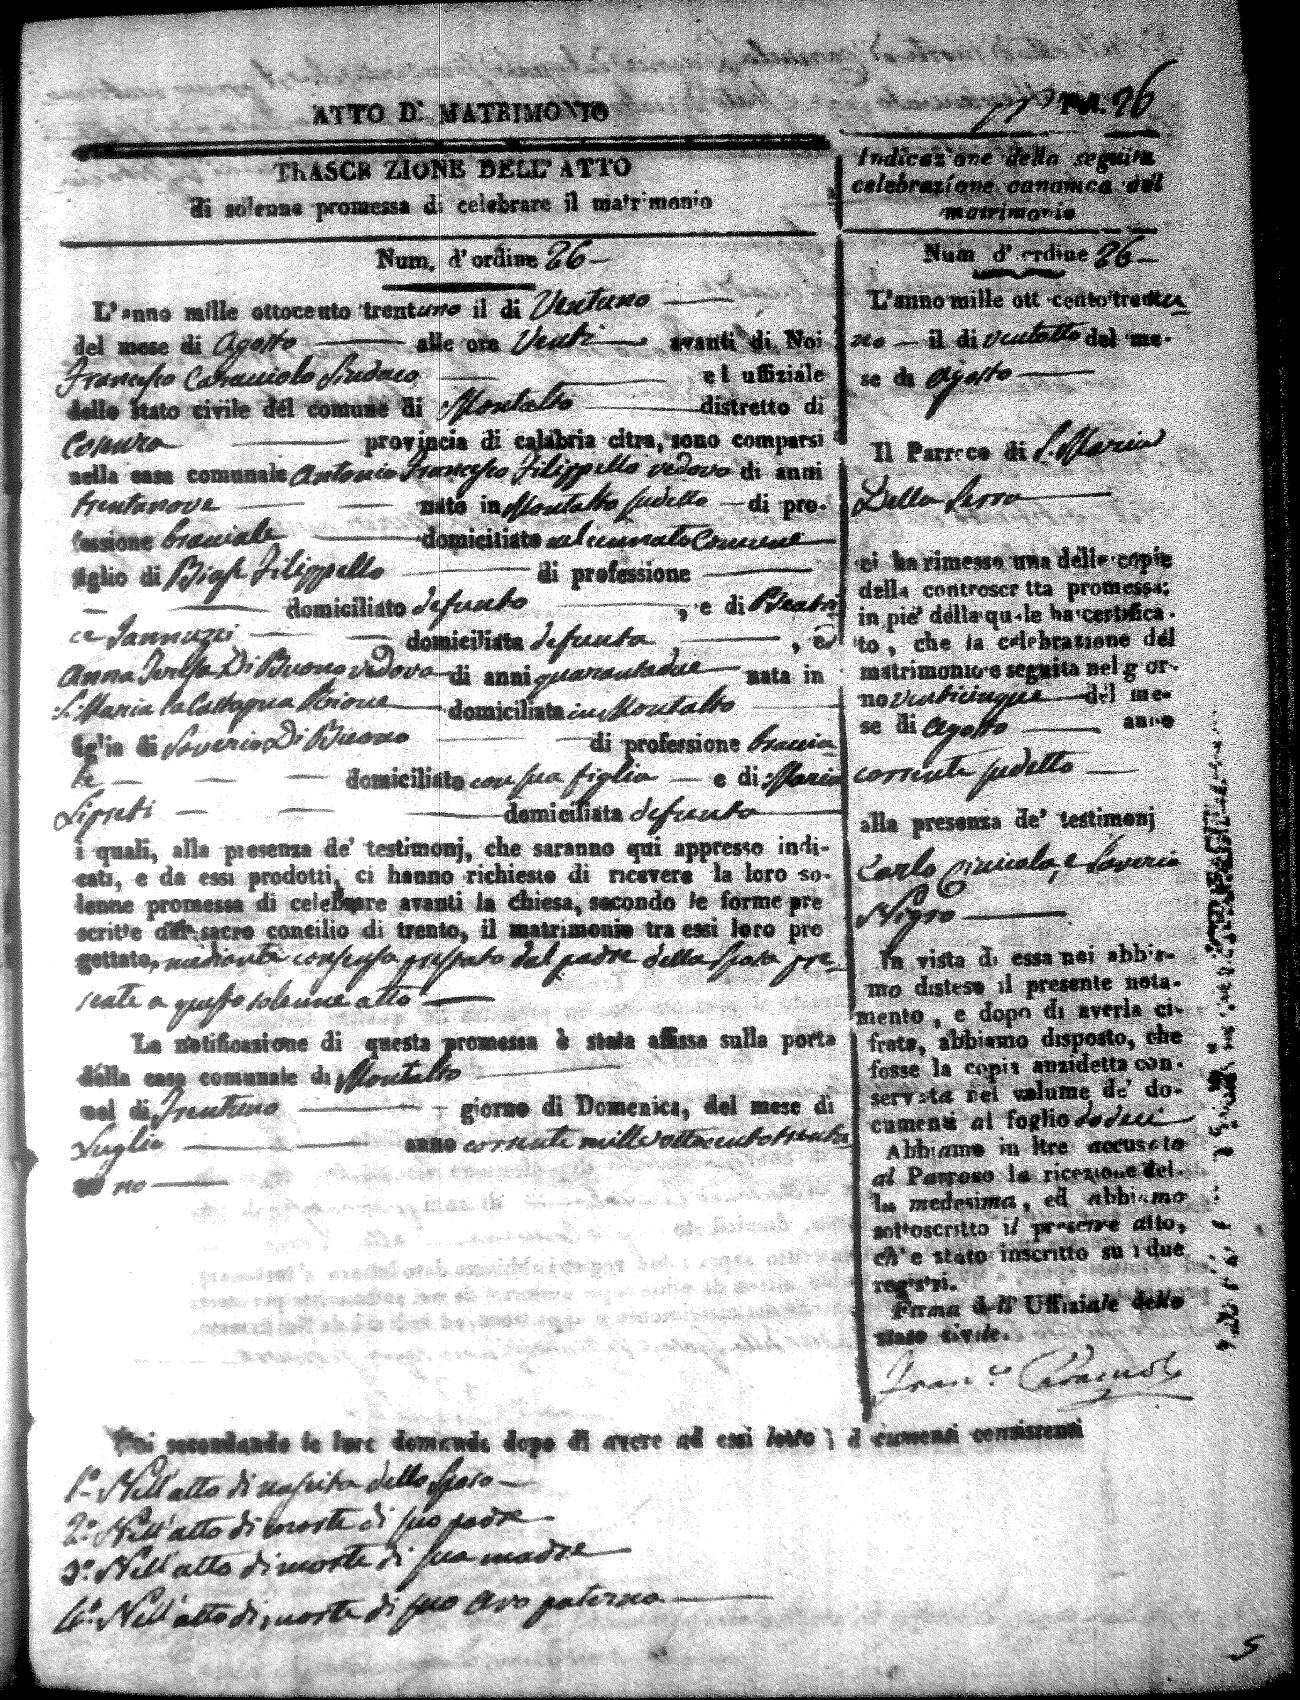 ATTO DI MATRIMONIO
26
TRASCRIZIONE DELL' ATTO
di solenne promessa di celebrare il matrimonio
Num. d'ordine 26
L'anno mille ottocento trentuno il di Ventuno
del mese di Agosto alle ore Venti avanti di Noi
Francesco Caracciolo Sindaco ed uffiziale
dello stato civile del comune di Montalto distretto di
Cosenza provincia di calabria citra, sono comparsi
nella casa comunale Antonio Francesco Filippello vedovo di anni
trentanove nato in Montalto sudetto di pro-
fessione bracciale domiciliato nel cennato Comune
figlio di Biase Filippello di professione
domiciliato defunto , e di Beatri
ce Iannuzzi domiciliata defunta , e
Anna Teresa Di Buono vedova di anni quarantadue nata in
S. Maria la Castagna domiciliata in Montalto
figlia di Saverio Di Buono di professione braccia
le domiciliato con sua figlia e di Maria
Lipreti domiciliata defunta
i quali, alla presenza de' testimonj, che saranno qui appresso indi-
cati, e da essi prodotti, ci hanno richiesto di ricevere la loro so-
lenne promessa di celebrare avanti la chiesa, secondo le forme pre
scritte dal sacro concilio di trento, il matrimonio tra essi loro pro
gettato, mediante consenso prestato dal padre della sposa pre-
sente a questo solenne atto
La notificazione di questa promessa è stata affissa sulla porta
della casa comunale di Montalto
nel di Trentuno giorno di Domenica, del mese di
Luglio anno corrente mille ottocento trenta
uno
Noi secondando le loro domande dopo di avere ad essi letto i documenti consistenti
1.° Nell'atto di nascita dello sposo
2.° Nell'atto di morte di suo padre
3.° Nell'atto di morte di sua madre
4.° Nell'atto di morte di suo avo paterno
Indicazione della seguita
celebrazione canonica del
matrimonio
Num d'ordine 26
L'anno mille ottocento trentu
no il di ventotto del me-
se di Agosto
Il Parroco di S. Maria
Della Serra
ci ha rimesso una delle copie
della controscritta promessa;
in piè della quale ha certifica-
to, che la celebrazione del
matrimonio e seguita nel gior-
no venticinque del me-
se di Agosto anno
corrente sudetto
alla presenza de' testimonj
Carlo e Saverio
Nigro
In vista di essa noi abbia-
mo disteso il presente nota-
mento, e dopo di averla ci-
frata, abbiamo disposto, che
fosse la copia anzidetta con-
servata nel volume de' do-
cumenti al foglio dodici
Abbiamo in ltre accusato
al Parroso la ricezione del-
la medesima, ed abbiamo
sottoscritto il presente atto,
ch'e stato inscritto su i due
registri.
Firma dell'Uffiziale dello
stato civile.
Fran.co Caracciolo
5